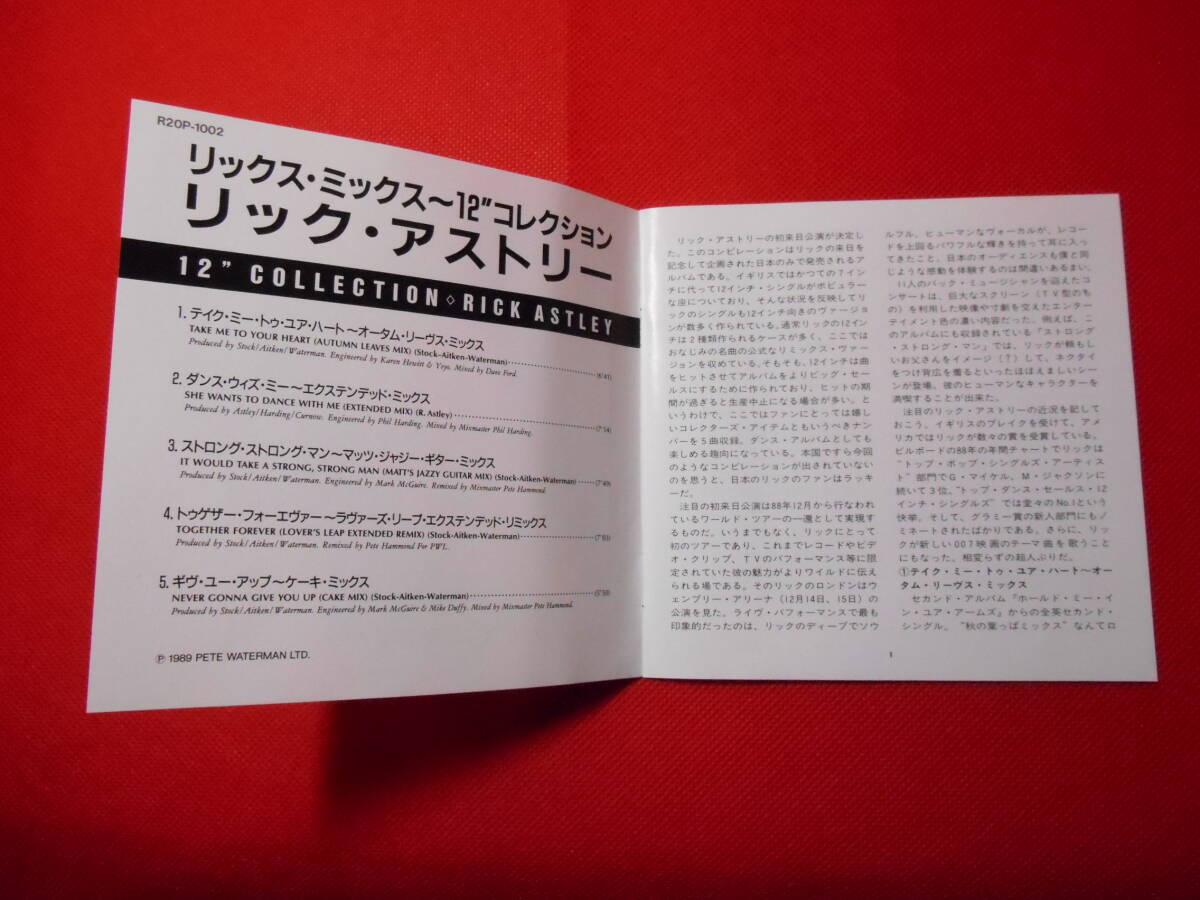 R20P-1002
リックス・ミックス〜12”コレクション
リック・アストリー
12” COLLECTION◇RICK ASTLEY
1. テイク・ミー・トゥ・ユア・ハート〜オータム・リーヴス・ミックス
TAKE ME TO YOUR HEART (AUTUMN LEAVES MIX) (Stock-Aitken-Waterman) (6'41)
Produced by Stock/Aitken/Waterman. Engineered by Karen Hewitt & Yoyo. Mixed by Dave Ford.
2. ダンス・ウィズ・ミー〜エクステンデッド・ミックス
SHE WANTS TO DANCE WITH ME (EXTENDED MIX) (R. Astley) (7'14)
Produced by Astley/Harding/Curnow. Engineered by Phil Harding. Mixed by Mixmaster Phil Harding.
3. ストロング・ストロング・マン〜マッツ・ジャジー・ギター・ミックス
IT WOULD TAKE A STRONG, STRONG MAN (MATT'S JAZZY GUITAR MIX) (Stock-Aitken-Waterman) (7'40)
Produced by Stock/Aitken/Waterman. Engineered by Mark McGuire. Remixed by Mixmaster Pete Hammond.
4. トゥゲザー・フォーエヴァー〜ラヴァーズ・リープ・エクステンデッド・リミックス
TOGETHER FOREVER (LOVER'S LEAP EXTENDED REMIX) (Stock-Aitken-Waterman) (7'03)
Produced by Stock/Aitken/Waterman. Remixed by Pete Hammond For PWL.
5. ギヴ・ユー・アップ〜ケーキ・ミックス
NEVER GONNA GIVE YOU UP (CAKE MIX) (Stock-Aitken-Waterman)
Produced by Stock/Aitken/Waterman. Engineered by Mark McGuire & Mike Duffy. Mixed by Mixmaster Pete Hammond.
Ⓟ 1989 PETE WATERMAN LTD.
リック・アストリーの初来日公演が決定し
た。このコンピレーションはリックの来日を
記念して企画された日本のみで発売されるア
ルバムである。イギリスではかつての7インチ
に代って12インチ・シングルがポピュラー
な座についており、そんな状況を反映してリ
ックのシングルも12インチ向きのヴァージョ
ンが数多く作られている。通常リックの12イン
チは2種類作られるケースが多く、ここでは
おなじみの名曲の公式なリミックス・ヴァー
ジョンを収めている。そもそも、12インチは曲
をヒットさせてアルバムをよりビッグ・セー
ルスにするために作られており、ヒットの期
間が過ぎると生産中止になる場合が多い。と
いうわけで、ここではファンにとっては嬉し
いコレクターズ・アイテムともいうべきナン
バーを5曲収録。ダンス・アルバムとしても
楽しめる趣向になっている。本国ですら今回
のようなコンピレーションが出されていない
のを思うと、日本のリックのファンはラッキ
ーだ。
注目の初来日公演は88年12月から行なわれ
ているワールド・ツアーの一環として実現す
るものだ。いうまでもなく、リックにとって
初のツアーであり、これまでレコードやビデ
オ・クリップ、TVのパフォーマンス等に限
定されていた彼の魅力がよりワイルドに伝え
られる場である。そのリックのロンドンはウ
ェンブリー・アリーナ(12月14日、15日)の
公演を見た。ライヴ・パフォーマンスで最も
印象的だったのは、リックのディープでソウ
ルフル、ヒューマンなヴォーカルが、レコー
ドを上回るパワフルな輝きを持って耳に入っ
てきたこと。日本のオーディエンスも僕と同
じような感動を体験するのは間違いあるまい。
11人のバック・ミュージシャンを迎えたコ
ンサートは、巨大なスクリーン(TV型のも
の)を利用した映像や寸劇を交えたエンター
テイメント色の濃い内容だった。例えば、こ
のアルバムにも収録されている『ストロング
・ストロング・マン』では、リックが頼もし
いお父さんをイメージ(?)して、ネクタイ
をつけ背広を着るといったほほえましいシー
ンが登場。彼のヒューマンなキャラクターを
満喫することが出来た。
注目のリック・アストリーの近況を記して
おこう。イギリスのブレイクを受けて、アメ
リカではリックが数々の賞を受賞している。
ビルボードの88年の年間チャートでリックは
“トップ・ポップ・シングルズ・アーティス
ト”部門でG・マイケル、M・ジャクソンに
続いて3位、“トップ・ダンス・セールス・12
インチ・シングルズ”では堂々のNo.1という
快挙。そして、グラミー賞の新人部門にもノ
ミネートされたばかりである。さらに、リッ
クが新しい007映画のテーマ曲を歌うこと
にもなった。相変らずの超人ぶりだ。
①テイク・ミー・トゥ・ユア・ハート〜オー
タム・リーヴス・ミックス
セカンド・アルバム『ホールド・ミー・イ
ン・ユア・アームズ』からの全英セカンド・
シングル。“秋の葉っぱミックス”なんてロ
1